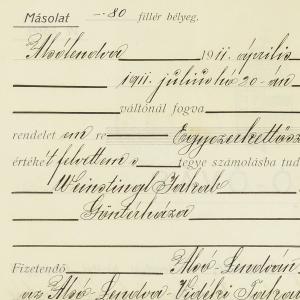 Másolat -·80 fillér bélyeg.
Alsólendva 1911. április
1911. július hó 20-án
váltónál fogva
rendelet em re Egyezerkettősz
értékét felvettem s tegye számolásba tud
Weinstingl Jakab
Gönterháza
Fizetendő Alsó-Lendván
az Alsó-Lendva-Vidéki Takar